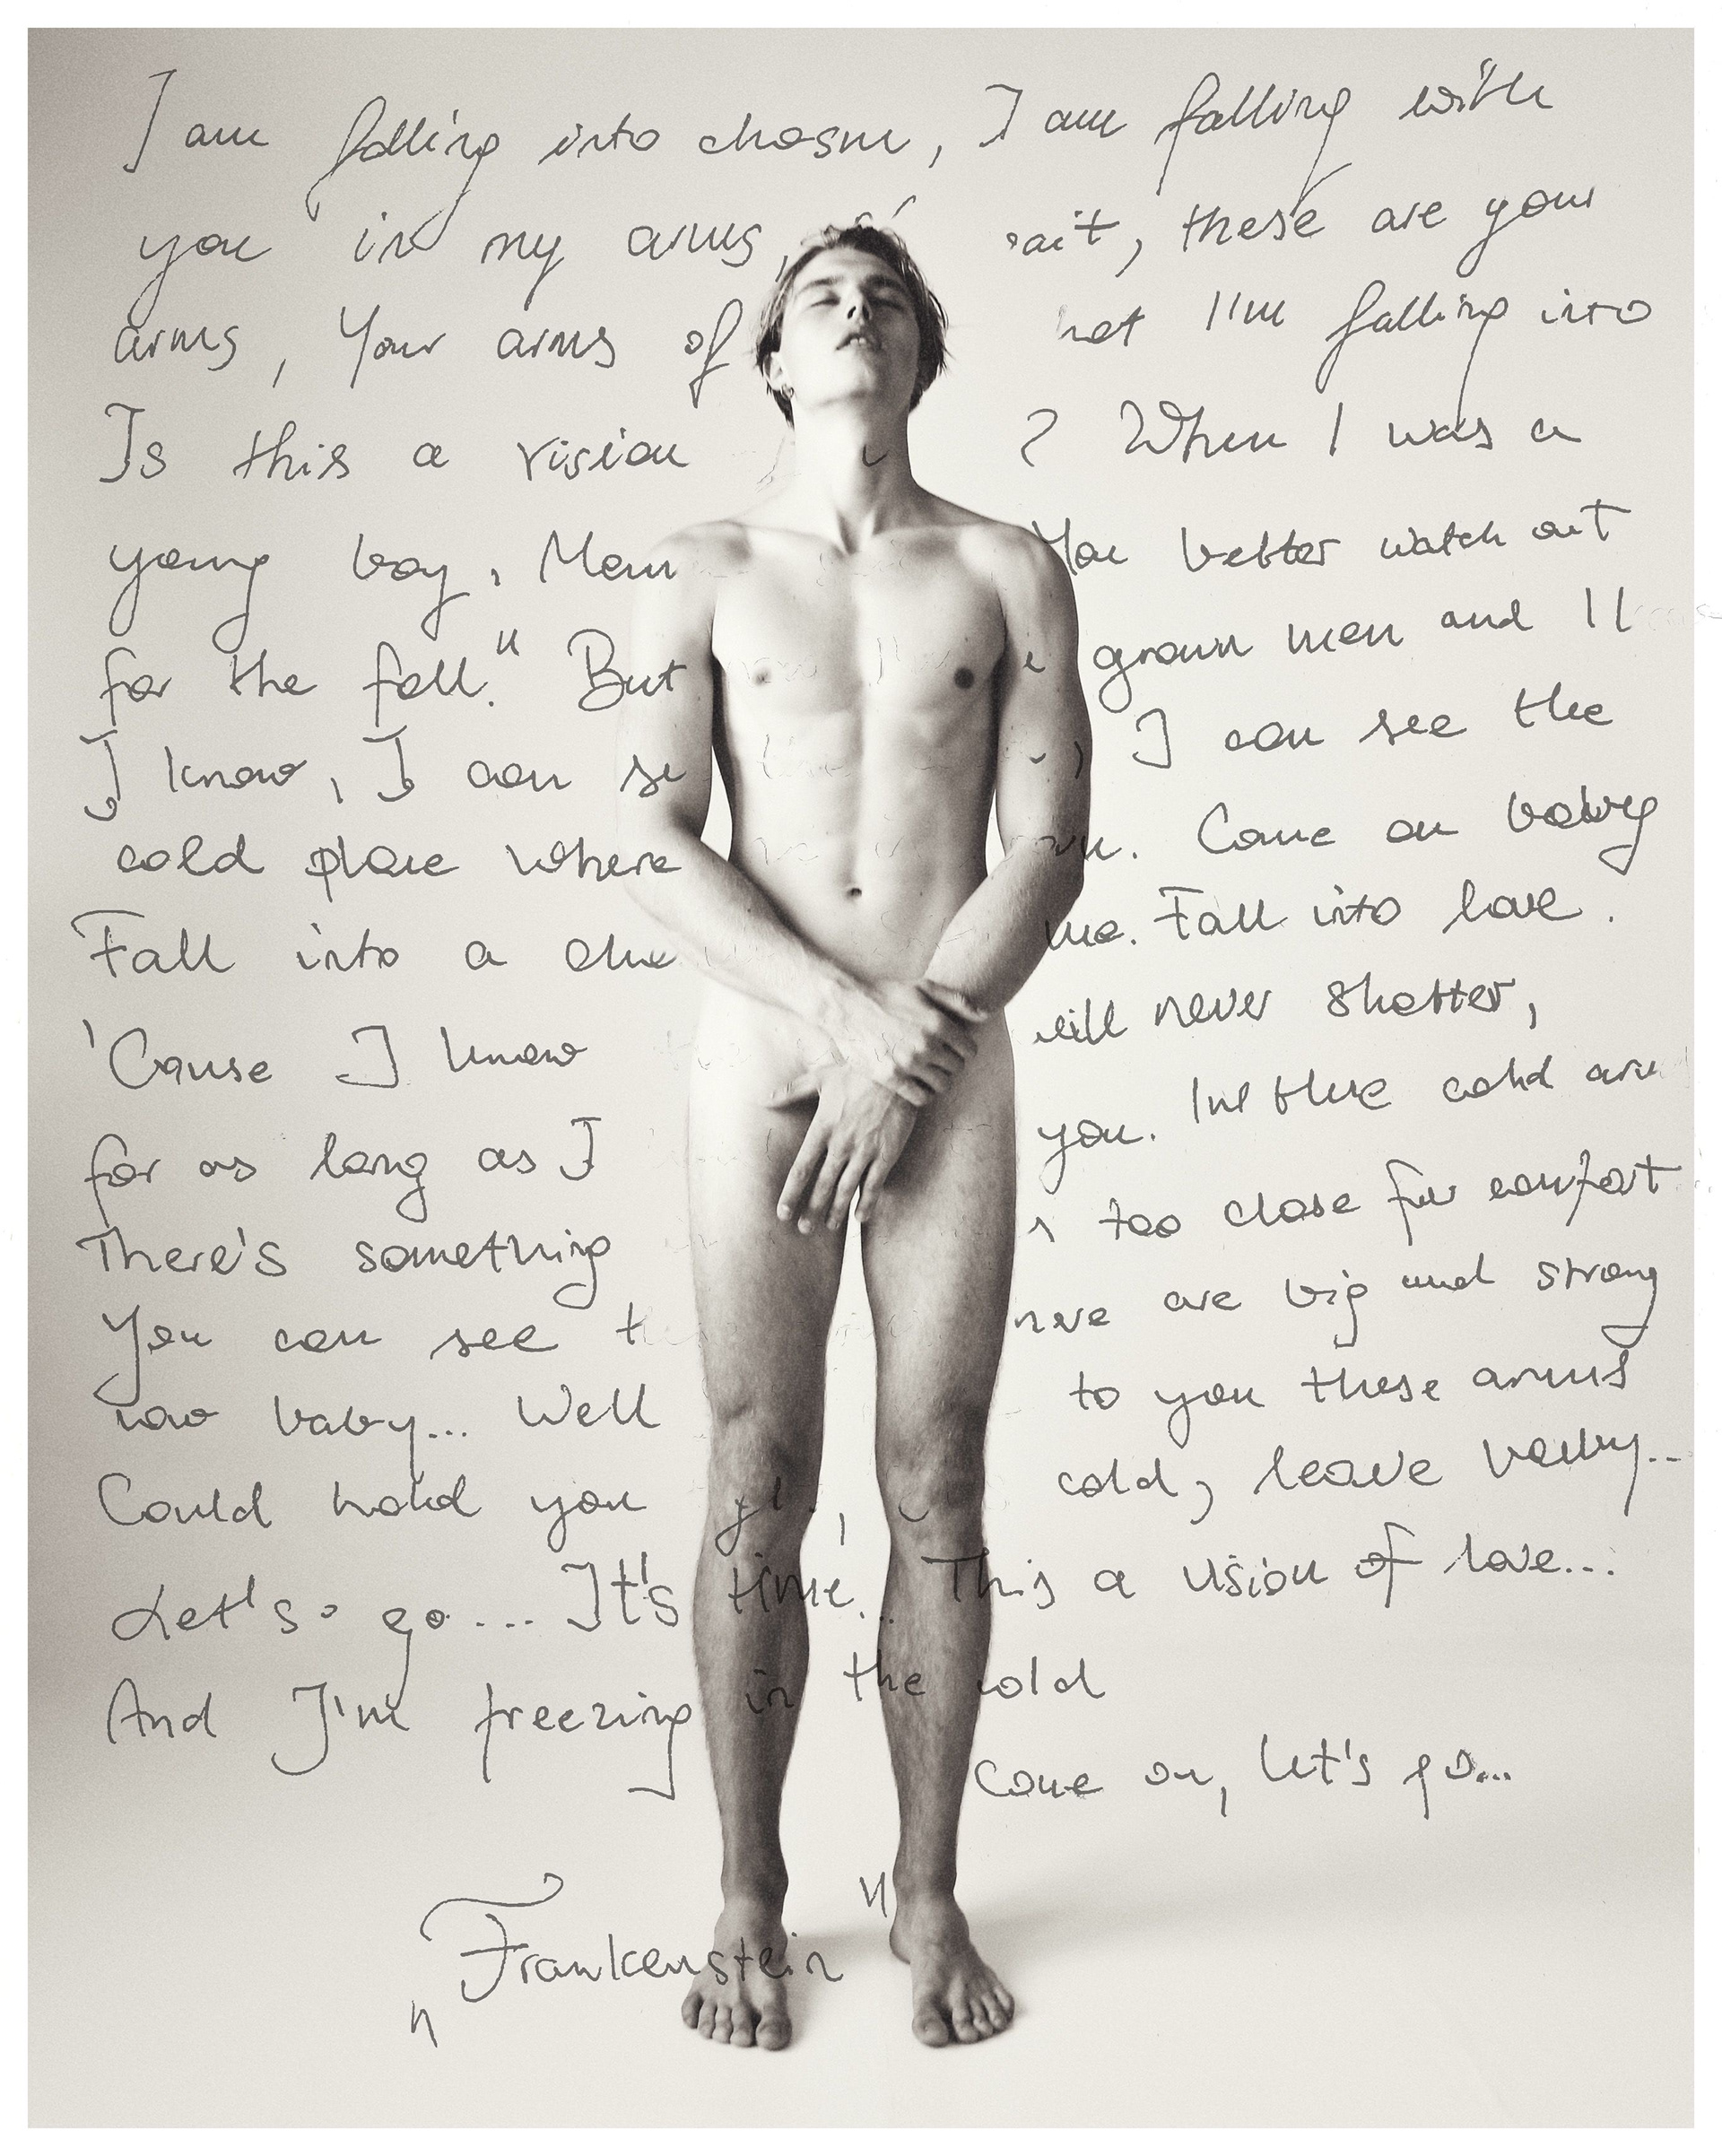 I am falling into chasm, I am falling with
you in my arms, these are your
arms, Your arms of not I'm falling into
Is this a vision ? When I was a
young boy, Mom You better watch out
for the fall." But grown men and
I know, I can se I can see the
cold place where Come on baby
Fall into a me. Fall into love.
'Cause I know will never shatter,
for as long as I you. cold
There's something too close for comfort
You can see are big and strong
now baby... Well to you these arms
Could hold you cold, leave
Let's go... It's time... This a vision of love...
And I'm freezing in the cold
Come on, let's go...
"Frankenstein"